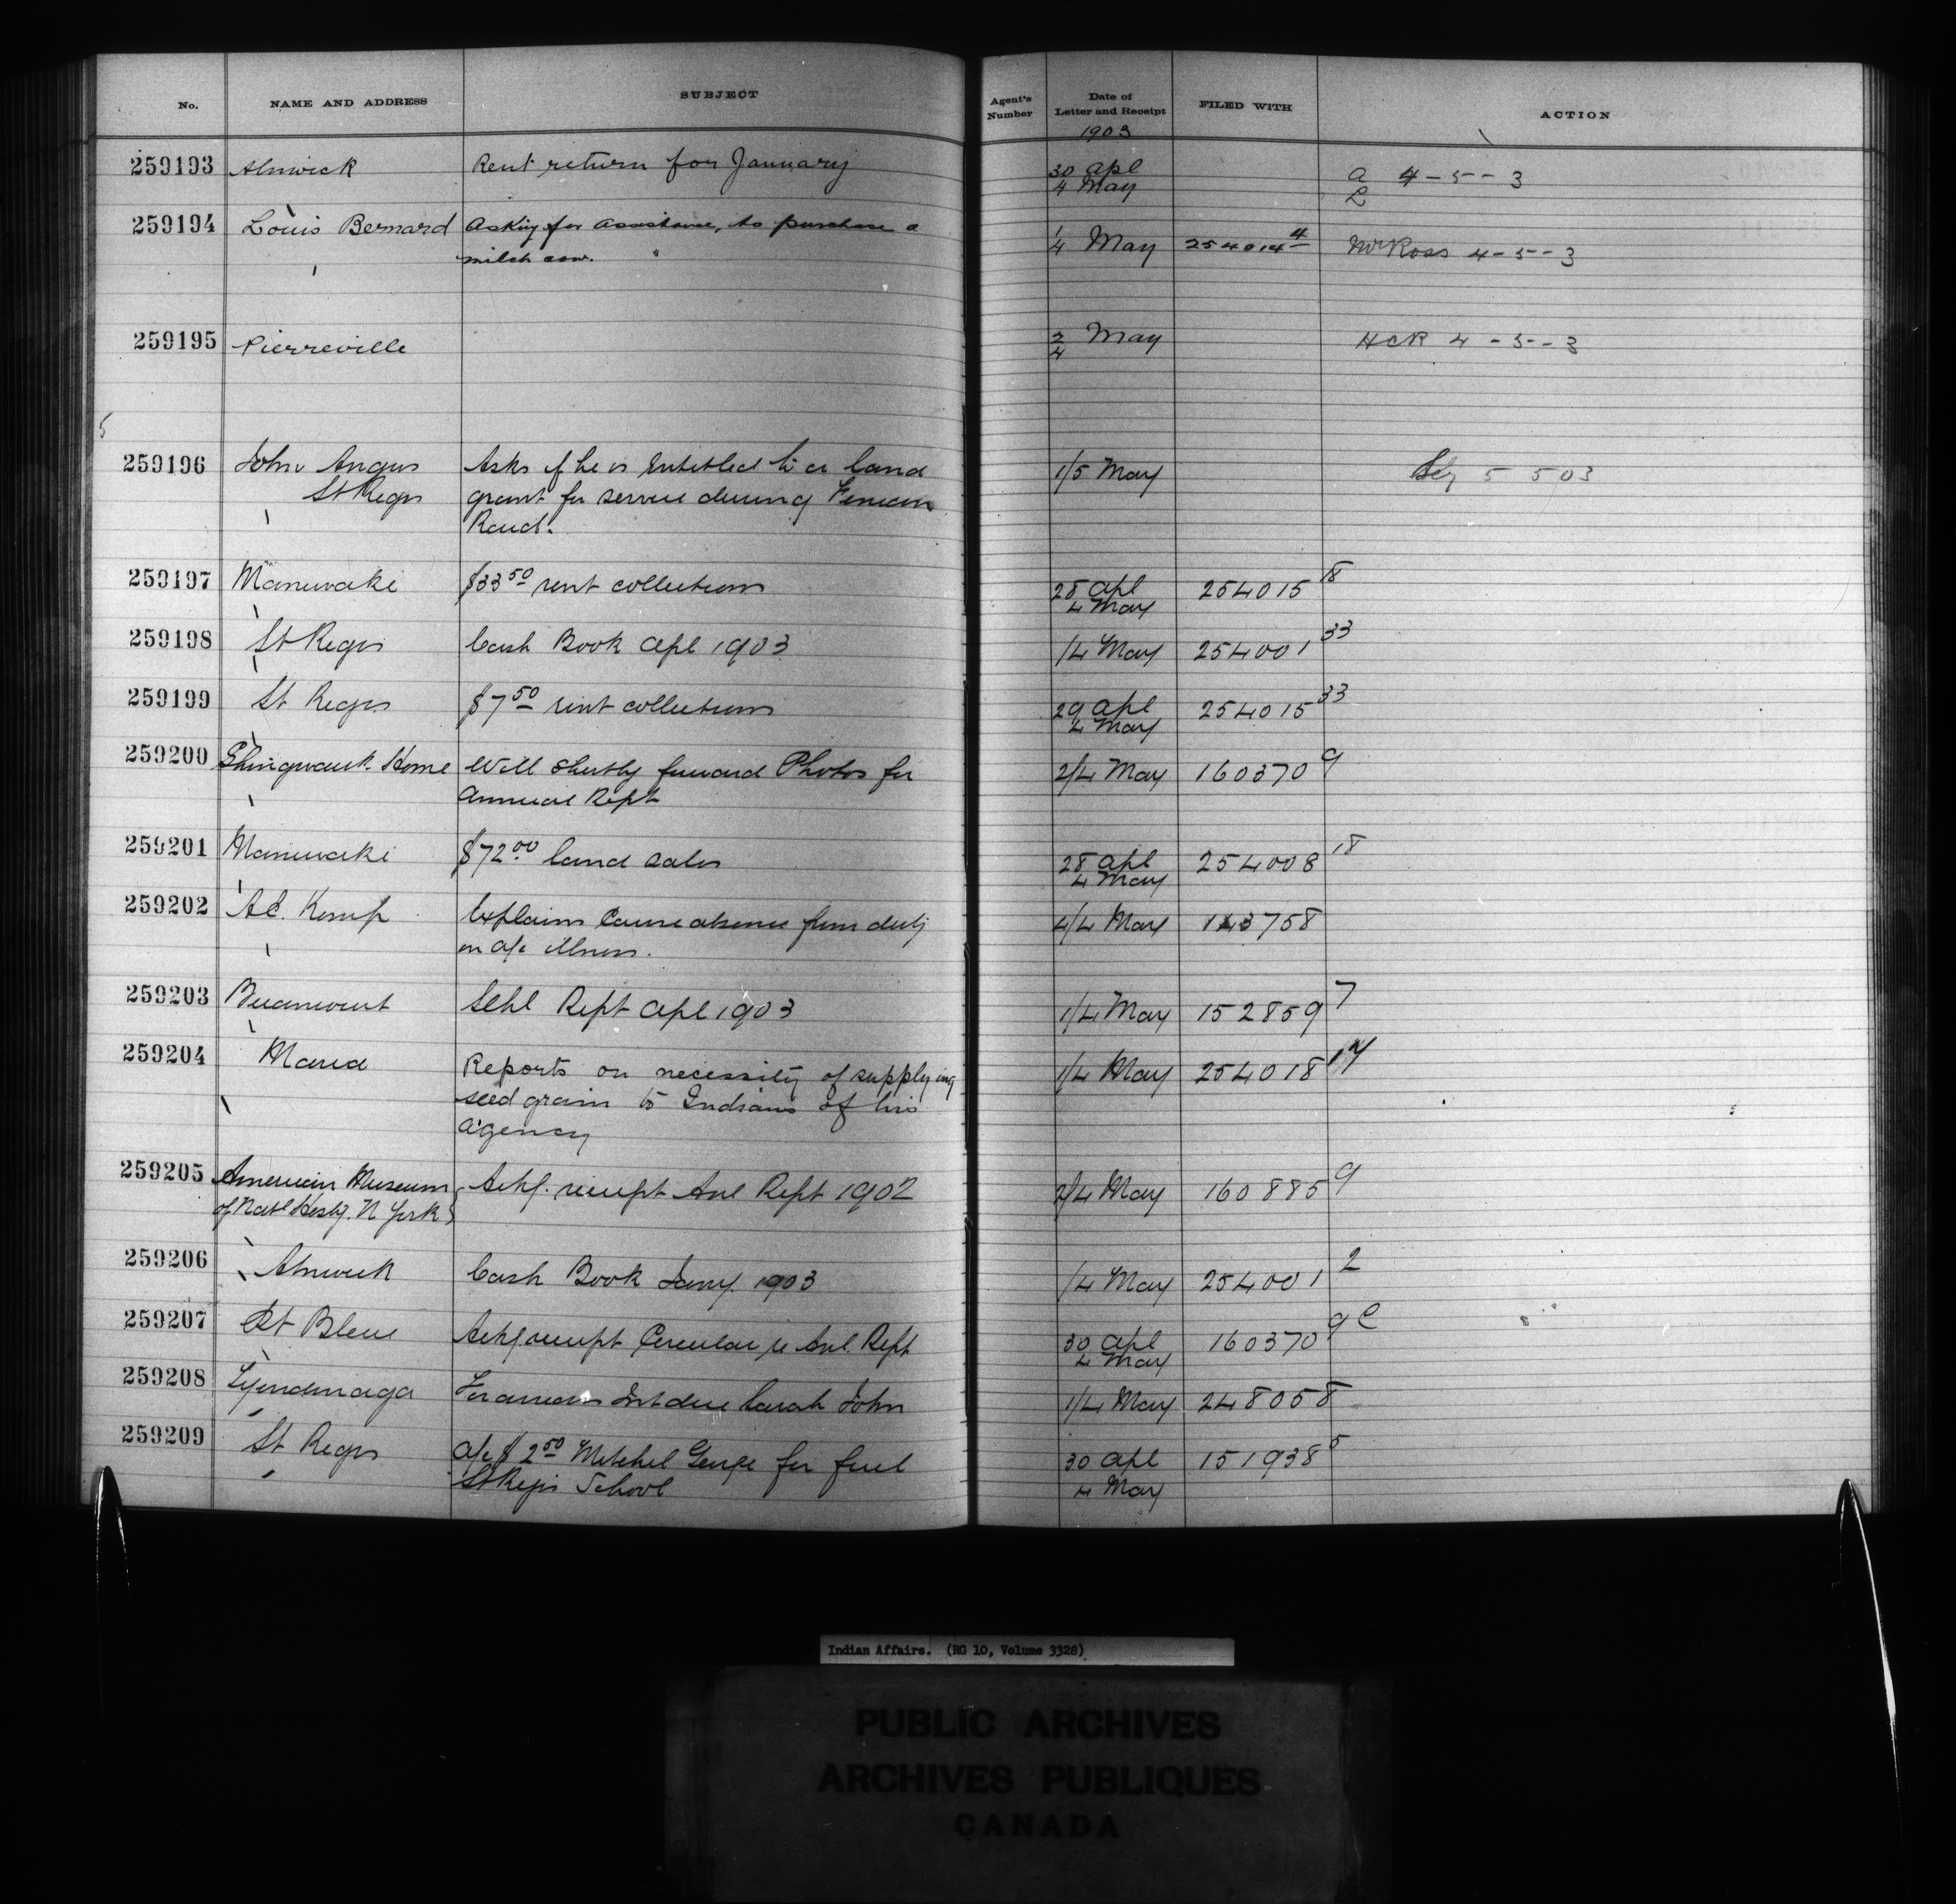 No. NAME AND ADDRESS SUBJECT Agent's Number Date of Letter and Receipt FILED WITH ACTION
1903
259193 Alnwick Rent return for January 30 Apl 4 May a 4-5-3
L
259194 Louis Bernard Asking for assistance, to purchase a
milch cow. 1/4 May 254014 4 Mr Ross 4-5-3
259195 Pierreville 2/4 May HCR 4-5-3
5
259196 John Angus Asks if he is entitled to a land 1/5 May 5 5 03
St Regis grant for service during Fenian
Raid.
259197 Maniwaki $33 50 rent collections 28 Apl 4 May 254015 18
259198 St Regis Cash Book Apl 1903 1/4 May 254001 33
259199 St Regis $7 50 rent collections 29 Apl 4 May 254015 33
259200 Shingwauk Home Will shortly forward Photos for 2/4 May 160370 9
Annual Rept
259201 Maniwaki $72 00 land sales 28 Apl 4 May 254008 18
259202 A.E. Kemp Explains Cause absence from duty 4/4 May 143758
on a/c illness.
259203 Schl Rept Apl 1903 1/4 May 152859 7
259204 Maria Reports on necessity of supplying 1/4 May 254018 14
seed grain to Indians of his
agency
259205 American Museum Ackg. receipt Anl Rept 1902 2/4 May 160885 9
of Natl Histy. N York
259206 Alnwick Cash Book Jany. 1903 1/4 May 254001 2
259207 Pt Bleue Ackg. receipt Circular re Anl. Rept 30 Apl 4 May 160370 9 C
259208 Tyendinaga Int due Sarah John 1/4 May 248058
259209 St Regis a/c $2 50 Mitchel George for fuel 30 Apl 151938 5
St Regis School 4 May
Indian Affairs. (RG 10, Volume 3328)
PUBLIC ARCHIVES
ARCHIVES PUBLIQUES
CANADA